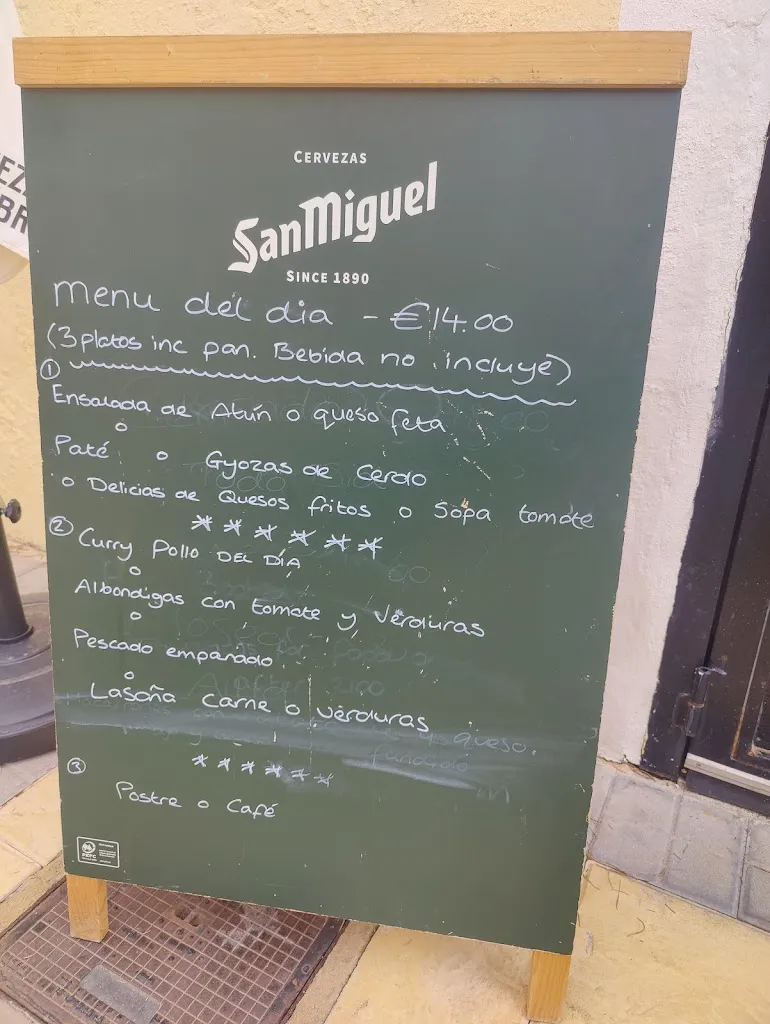 EZ
BR
CERVEZAS
SanMiguel
SINCE 1890
menu del dia - €14.00
(3 platos inc pan. Bebida no incluye)
①
Ensalada de Atún o queso feta
o
Paté o Gyozas de Cerdo
o Delicias de Quesos fritos o Sopa tomate
******
② Curry Pollo DEL DÍA
o
Albondigas con tomate y verduras
o
Pescado empanado
o
Lasaña carne o verduras
queso.
fundado
******
③
Postre o Café
PEFC